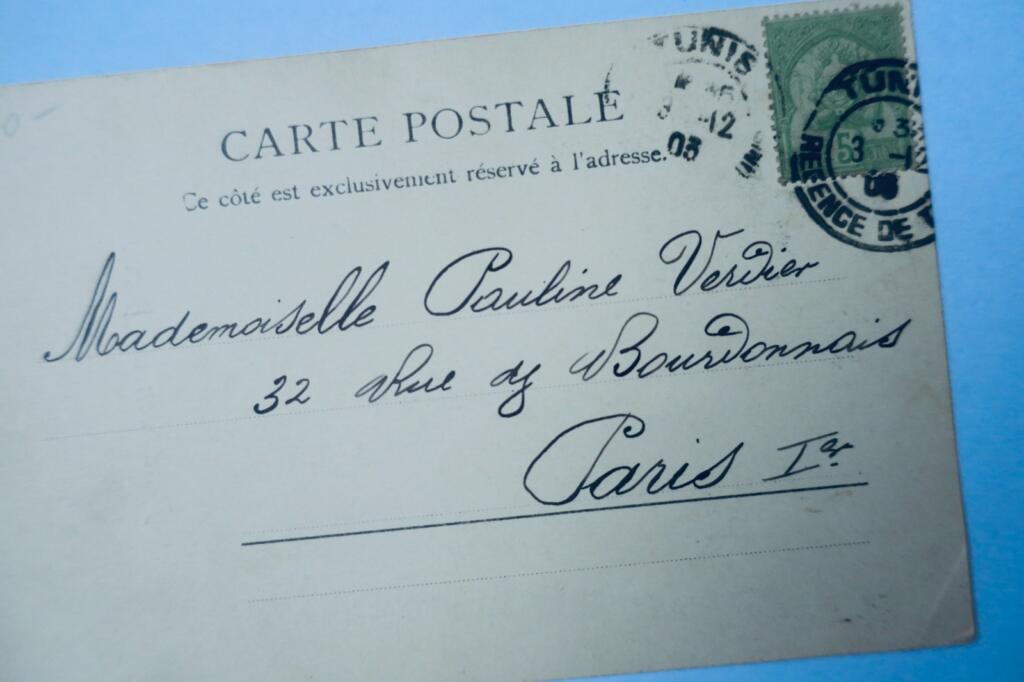 CARTE POSTALE
Ce côté est exclusivement réservé à l'adresse.
TUNIS
12
03
5
TUNI
3
REGENCE DE T
Mademoiselle Pauline Verdier
32 Rue des Bourdonnais
Paris Ier